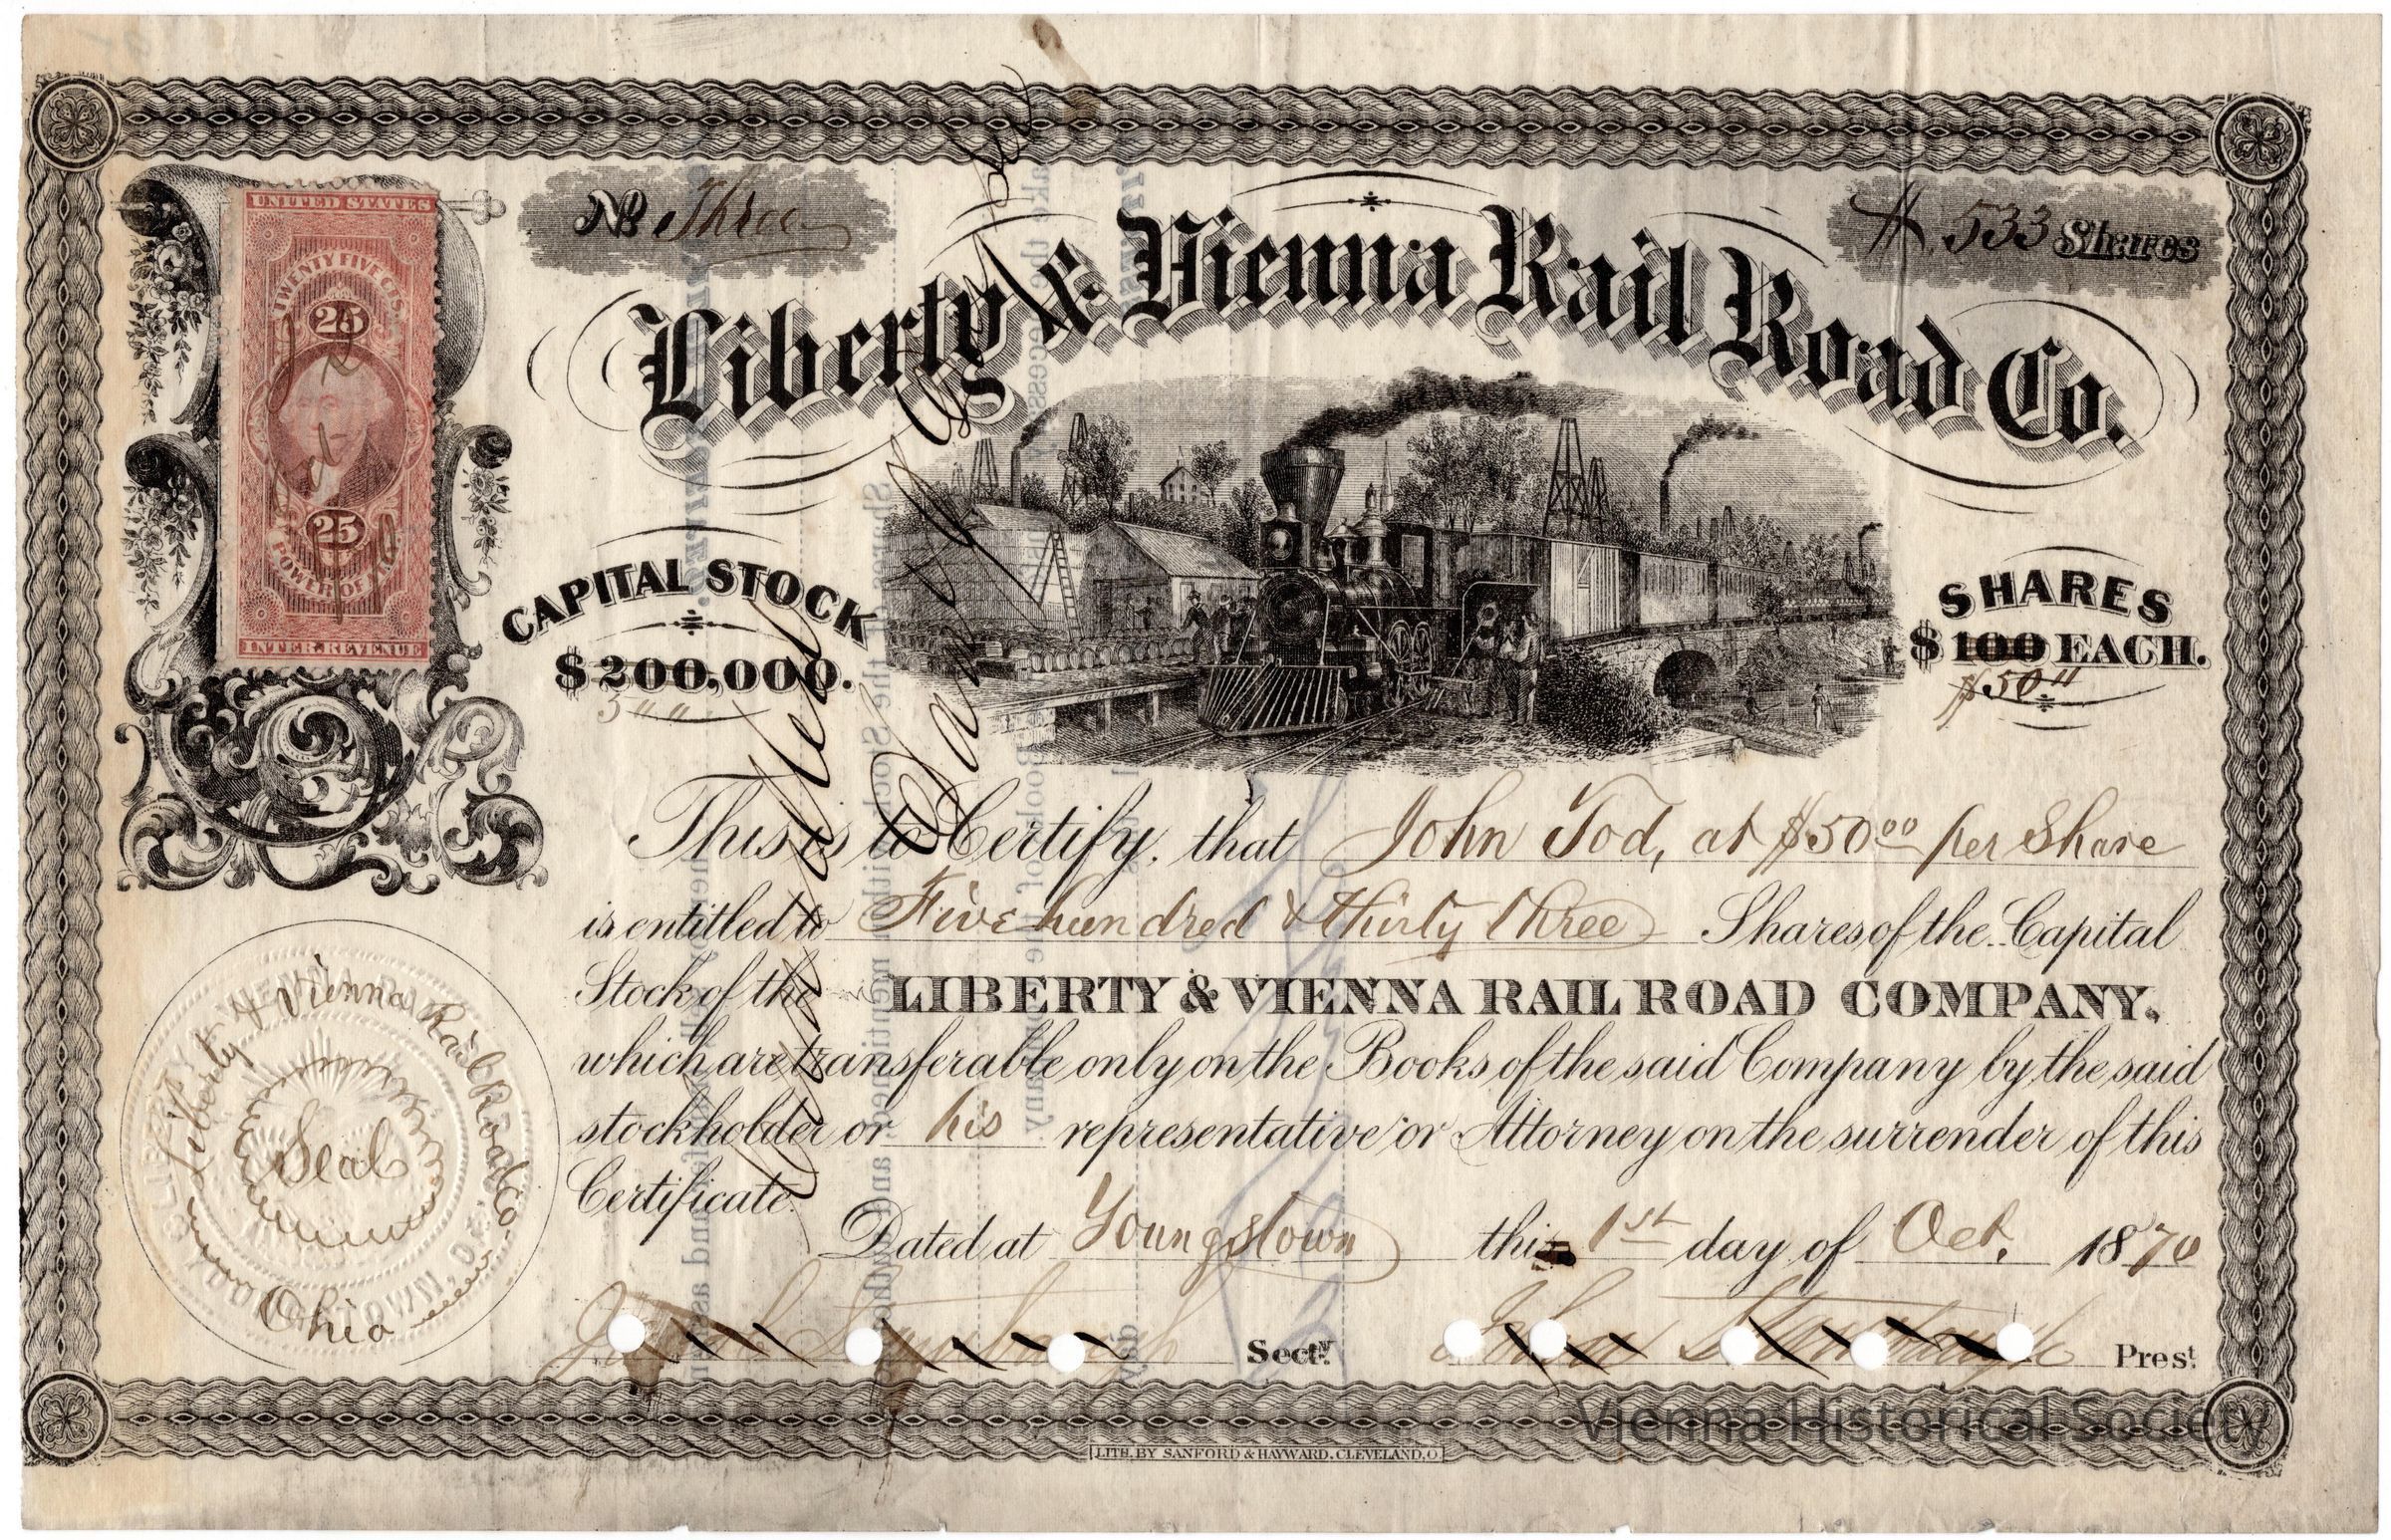 No Three
533 Shares
Liberty & Vienna Rail Road Co.
UNITED STATES
TWENTY FIVE CTS.
25
25
POWER OF
INTER. REVENUE
CAPITAL STOCK
$200,000.
SHARES
$100 EACH.
$50
This is to Certify, that John Tod, at $50 00 per Share
is entitled to Five hundred & thirty three Shares of the Capital
Stock of the LIBERTY & VIENNA RAIL ROAD COMPANY,
which are transferable only on the Books of the said Company by the said
stockholder or his representative or Attorney on the surrender of this
Certificate.
Dated at Youngstown this 1st day of Oct. 1870
Secty.
John Stambaugh Prest.
Liberty & Vienna Rail Road Co.
Seal
Ohio
Cancelled
LITH. BY SANFORD & HAYWARD, CLEVELAND, O.
Vienna Historical Society